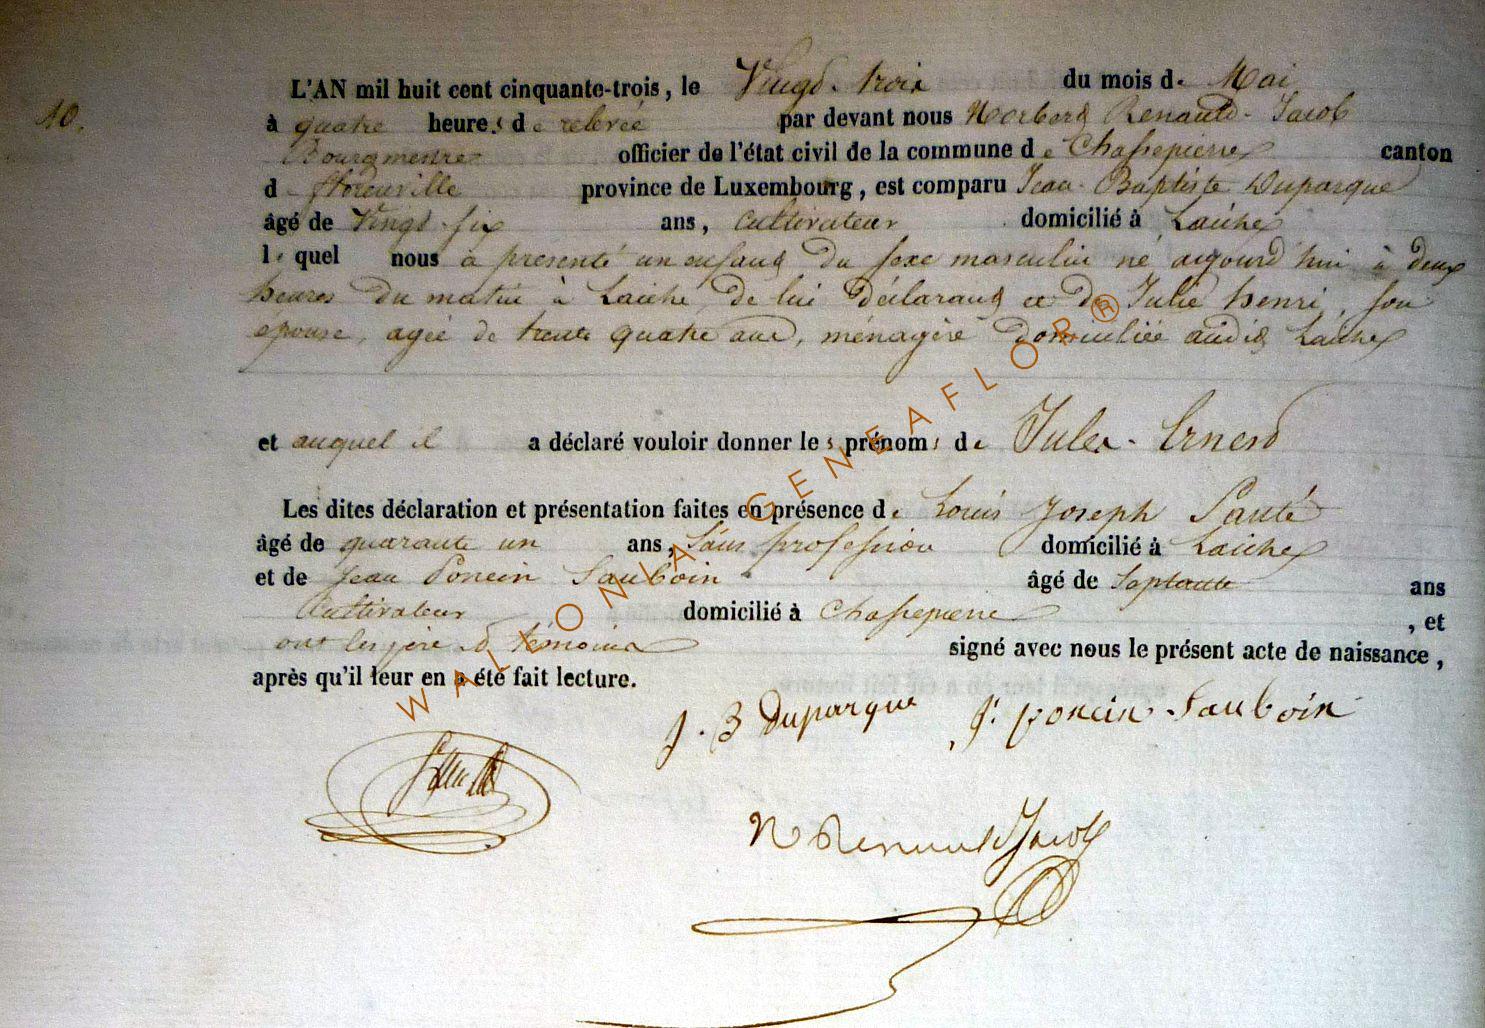 10.
L'AN mil huit cent cinquante-trois, le Vingt-trois du mois de Mai
à quatre heures de relevée par devant nous Norbert Renauld-Jacob
Bourgmestre officier de l'état civil de la commune de Chassepierre canton
d Florenville province de Luxembourg, est comparu Jean-Baptiste Duparque
âgé de Vingt-six ans, Cultivateur domicilié à Laiche
lequel nous a présenté un enfant du sexe masculin né aujourd'hui à deux
heures du matin à Laiche de lui déclarant et de Julie henri, son
épouse, agée de trente quatre ans, ménagère domiciliée audit Laiche
et auquel il a déclaré vouloir donner les prénoms de Jules-Ernest
Les dites déclaration et présentation faites en présence de Louis Joseph
âgé de quarante un ans, Sans profession domicilié à Laiche
et de Jean Poncin Sauboin âgé de Saptante ans
Cultivateur domicilié à Chassepierre, et
ont les père et témoins signé avec nous le présent acte de naissance,
après qu'il leur en a été fait lecture.
J. B Duparque J. poncin-Sauboin
N Renauld Jacob
WALLONIA GENEAFLOR®